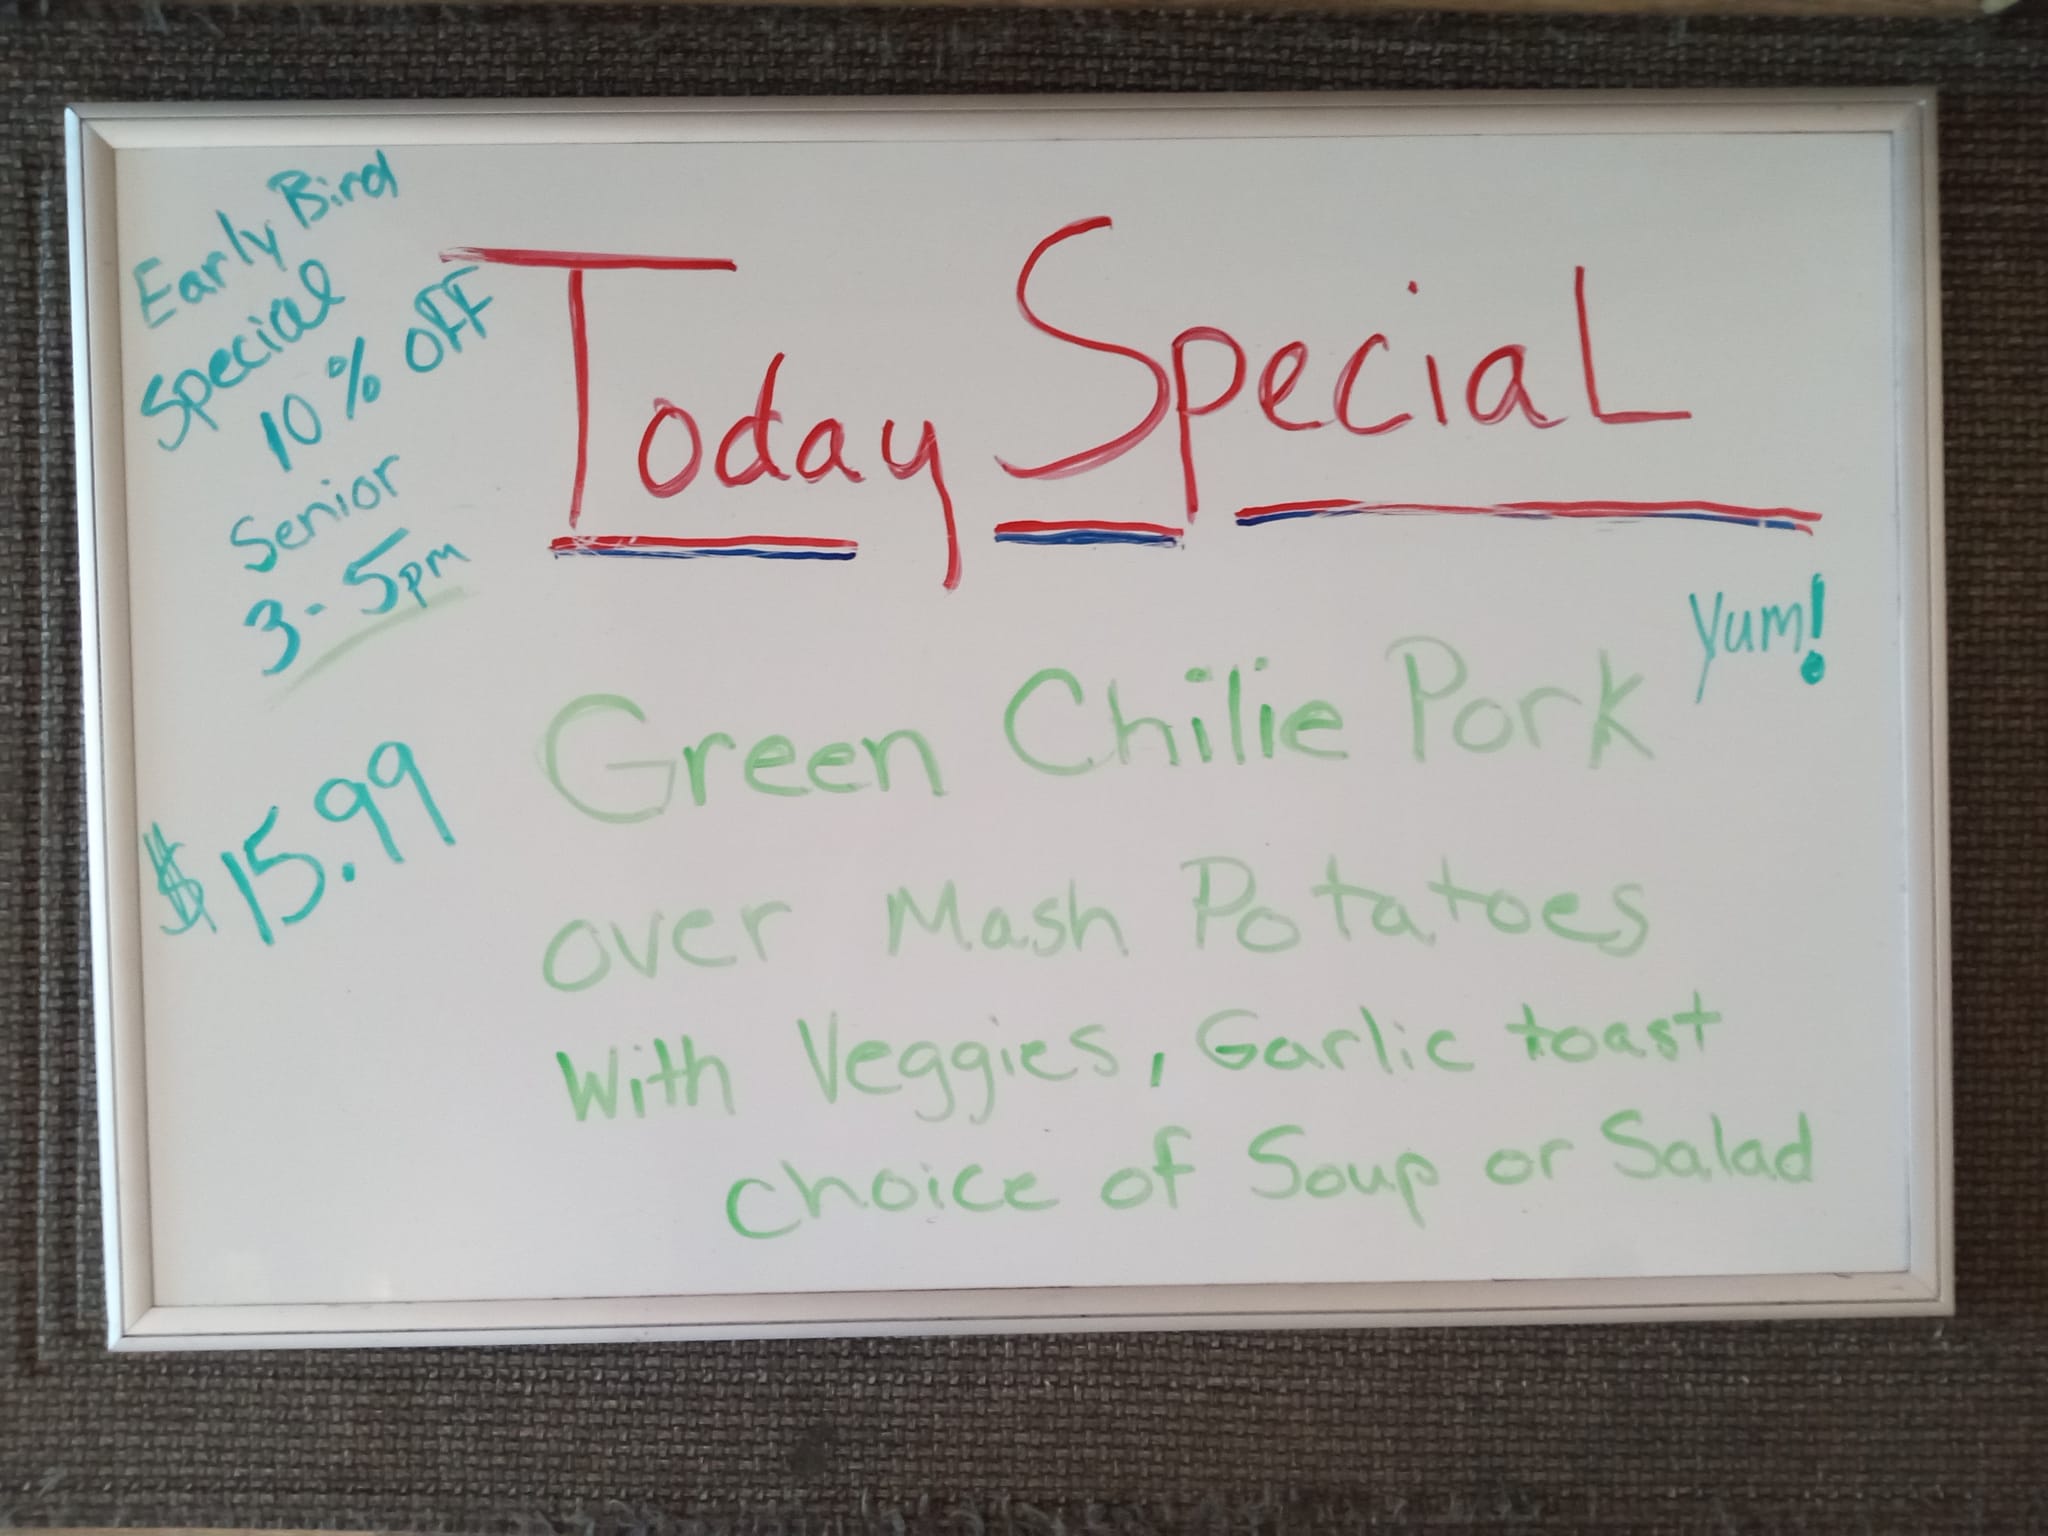 Early Bird
Special
10% OFF
Senior
3-5pm
$15.99
Today Special
Yum!
Green Chilie Pork
over Mash Potatoes
With Veggies, Garlic toast
choice of Soup or Salad